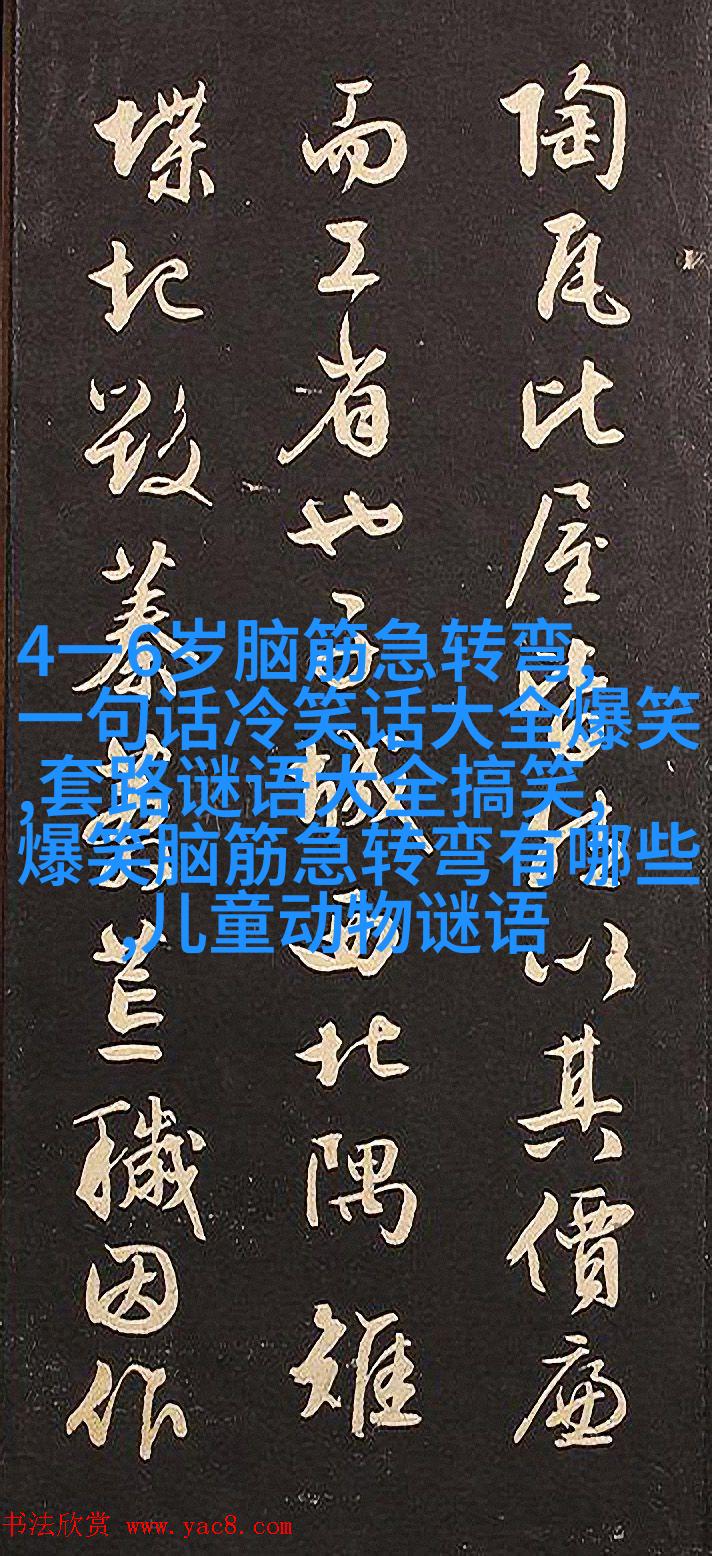 陶瓦比屋皆然以其價廉
而工省也子城西北隅雉
堞圮毀蓁莽荒穢因作
4一6岁脑筋急转弯,
一句话冷笑话大全爆笑
,套路谜语大全搞笑,
爆笑脑筋急转弯有哪些
,儿童动物谜语
书法欣赏 www.yac8.com